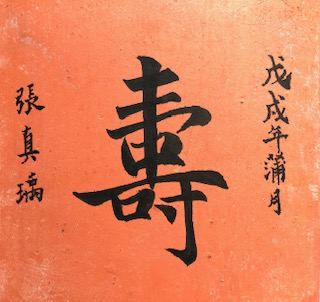 戊戌年蒲月
壽
張真瑀